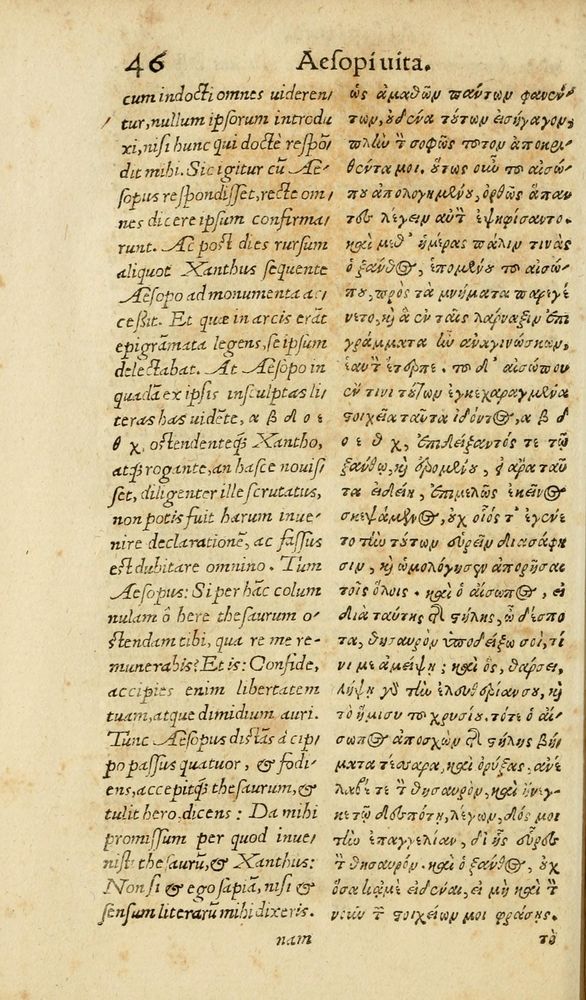 46 Aesopi uita.
cum indocti omnes uideren/
tur, nullum ipsorum introdu
xi, nisi hunc qui doctè respõ/
dit mihi. Sic igitur cũ Ae/
sopus respondisset, recte om/
nes dicere ipsum confirma/
runt. Ac post dies rursum
aliquot Xanthus sequente
Aesopo ad monumenta ac/
cessit. Et quæ in arcis erãt
epigrãmata legens, se ipsum
delectabat. At Aesopo in
quadã ex ipsis insculptas li/
teras has uidẽte, α β δ ο ε
θ χ, ostendenteq́; Xantho,
atq́; rogante, an hasce nouis/
set, diligenter ille scrutatus,
non potis fuit harum inue/
nire declarationẽ, ac fassus
est dubitare omnino. Tum
Aesopus: Si per hãc colum
nulam ô here thesaurum o/
stendam tibi, qua re me re/
munerabis? Et is: Confide,
accipies enim libertatem
tuam, atque dimidium auri.
Tunc Aesopus distãs à cip/
po passus quatuor, & fodi/
ens, accepitq́; thesaurum, &
tulit hero, dicens: Da mihi
promissum per quod inue/
nisti thesaurũ, & Xanthus:
Non si & ego sapiã, nisi &
sensum literarũ mihi dixeris.
nam
ὡς ἀμαθῶν πάντων φανέν/
των, οὐδένα τούτων εἰσήγαγον,
πλὴν τ̃ σοφῶς τοῦτον ἀποκρι/
θέντα μοι. οὕτως οὖν τοῦ αἰσώ/
που ἀπολογημένου, ὀρθῶς ἅπαν
τες λέγειν αὐτ̀ ἐψηφίσαντο.
καὶ μεθ' ἡμέρας πάλιν τινὰς
ὁ ξάνθος, ἑπομένου τοῦ αἰσώ/
που, πρὸς τὰ μνήματα παρεγέ
νετο, κὴ ἃ ἐν ταῖς λάρναξιν ἐπι
γράμματα ὧν ἀναγινώσκων,
ἑαυτ̀ ἔτερπε. τοῦ δ' αἰσώπου
ἐν τινι τούτων ἐγκεχαραγμένα
στοιχεῖα ταῦτα ἰδόντος, α β δ
ο ε θ χ, ἐπιδείξαντός τε τῷ
ξάνθῳ, κὴ ἐρομένου, εἰ ἄρα ταῦ
τα εἰδείη, ἐπιμελῶς ἐκεῖνος
σκεψάμενος, οὐχ οἷός τ' ἐγένε
το τὴν τούτων εὑρεῖν διασάφη
σιν, κὴ ὡμολόγησεν ἀπορῆσαι
τοῖς ὅλοις. καὶ ὁ αἴσωπος, εἰ
διὰ ταύτης τῆς στήλης, ὦ δέσπο
τα, θησαυρὸν ὑποδείξω σοι, τί
νι με ἀμείψῃ; καὶ ὅς, θάρσει,
λήψῃ γὸ τὴν ἐλευθερίαν σου, κὴ
τὸ ἥμισυ τοῦ χρυσίου. τότε ὁ αἴ
σωπος ἀποσχὼν τῆς στήλης βή
ματα τέσσαρα, καὶ ὀρύξας, ἀνέ
λαβέ τε τ̀ θησαυρόν, καὶ ἤνεγ
κε τῷ δεσπότῃ, λέγων, δός μοι
τὴν ἐπαγγελίαν, δι' ἧς εὗρες
τ̀ θησαυρόν. καὶ ὁ ξάνθος, οὐχ
ὅσα εἰδέναι, εἰ μὴ καὶ τ̀
νοῦν τ̃ στοιχείων μοι φράσῃς.
τὸ